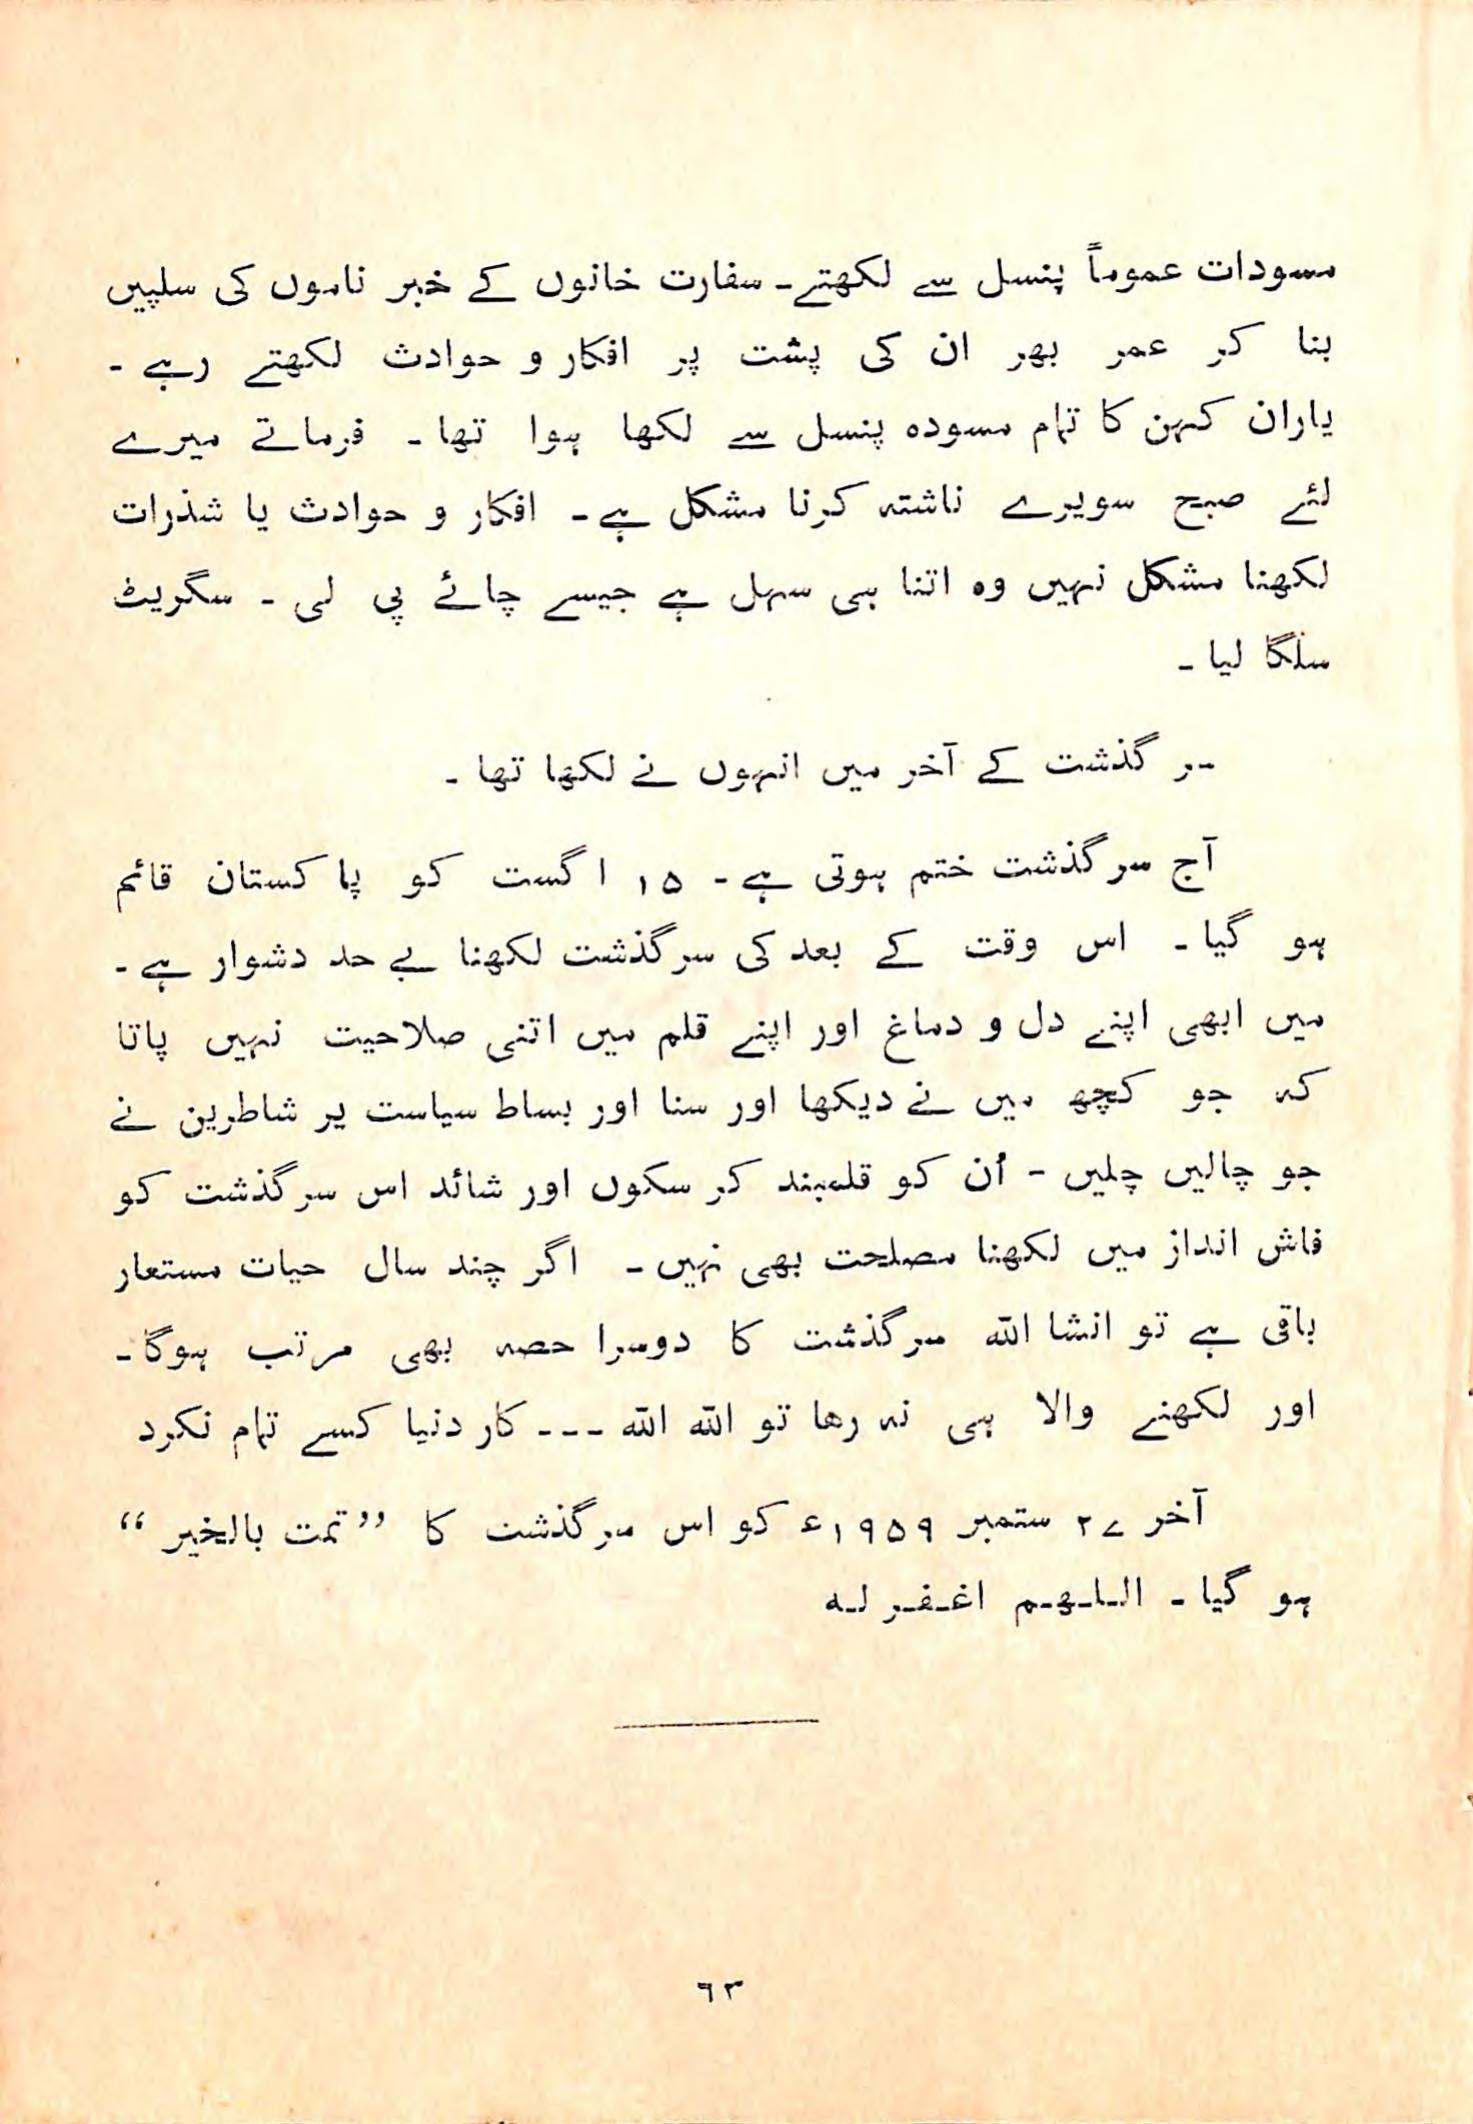 مسودات عموماً پنسل سے لکھتے۔ سفارت خانوں کے خبر ناموں کی سلپیں
بنا کر عمر بھر ان کی پشت پر افکار و حوادث لکھتے رہے ۔
یاران کہن کا تمام مسودہ پنسل سے لکھا ہوا تھا ۔ فرماتے میرے
لئے صبح سویرے ناشتہ کرنا مشکل ہے ۔ افکار و حوادث یا شذرات
لکھنا مشکل نہیں وہ اتنا ہی سہل ہے جیسے چائے پی لی ۔ سگریٹ
سلگا لیا ۔
سر گذشت کے آخر میں انہوں نے لکھا تھا ۔
آج سر گذشت ختم ہوتی ہے ۔ ۱۵ اگست کو پاکستان قائم
ہو گیا ۔ اس وقت کے بعد کی سر گذشت لکھنا بے حد دشوار ہے ۔
میں ابھی اپنے دل و دماغ اور اپنے قلم میں اتنی صلاحیت نہیں پاتا
کہ جو کچھ میں نے دیکھا اور سنا اور بساط سیاست پر شاطرین نے
جو چالیں چلیں - اُن کو قلمبند کر سکوں اور شائد اس سر گذشت کو
فاش انداز میں لکھنا مصلحت بھی نہیں ۔ اگر چند سال حیات مستعار
باقی ہے تو انشا اللہ سر گذشت کا دوسرا حصہ بھی مرتب ہوگا ۔
اور لکھنے والا ہی نہ رھا تو اللہ اللہ ۔۔۔ کار دنیا کسے تمام نکرد
آخر ۲۷ ستمبر ۱۹۵۹ء کو اس سر گذشت کا ”تمت بالخیر“
ہو گیا ۔ اللہم اغفر لہ
۶۳